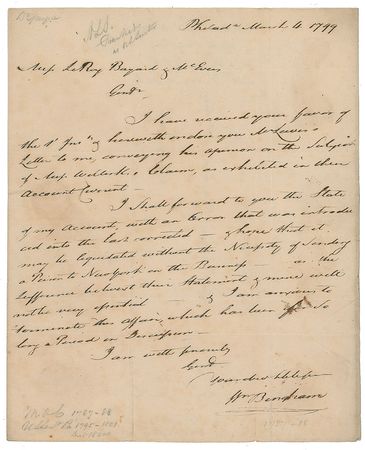 Philad.a March 4. 1799
Mess. LeRoy Bayard & McEvers
Gent.n
I have received your favor of
the 1st Ins.t & herewith enclose you Mr Lewis's
Letter to me, conveying his opinion on the Subject
of Mess. Willink's Claim, as exhibited in their
Account Current
I shall forward to you the State
of my Account, with an Error that was introdu
ced into the last corrected & hope that it
may be liquidated without the Necessity of Sending
a Person to New York on the Business as the
Difference betwixt their Statement & mine will
not be very essential & I am anxious to
terminate this Affair, which has been so
long a Period in Discussion
I am with sincerity
Gent.n
Your obed. hble Ser
Wm Bingham
1787-88
1795-1801